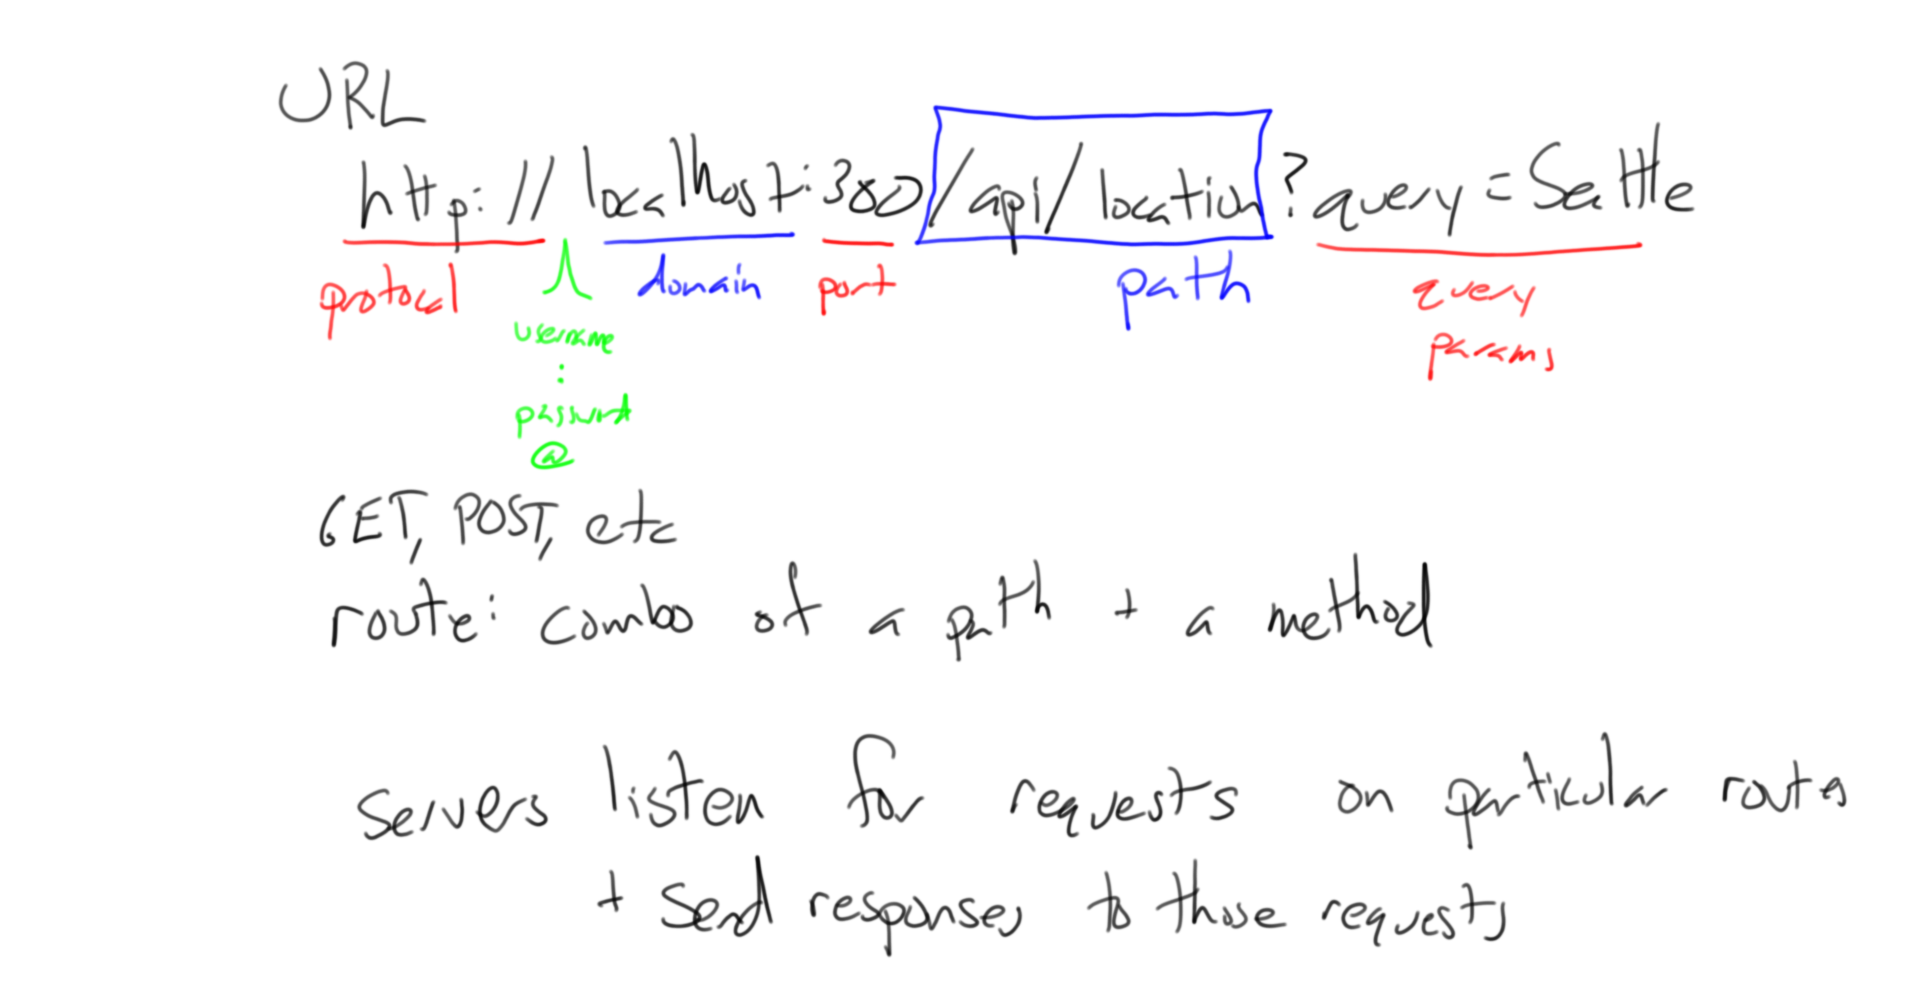 URL
http://localhost:3000/api/location?query=Seattle
protocol domain port path query
params
username
:
password
@
GET, POST, etc
route: combo of a path + a method
servers listen for requests on particular routes
+ send responses to those requests